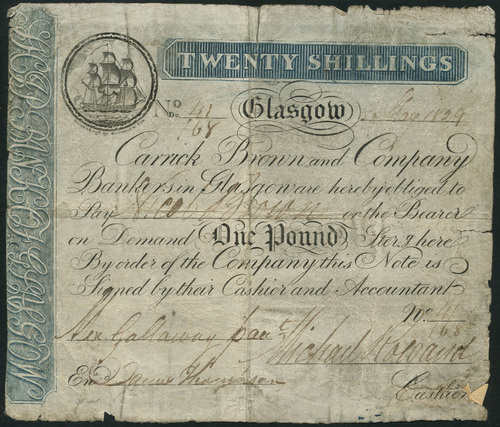 TWENTY SHILLINGS
No. 41/168 Glasgow
Carrick Brown and Company
Bankers in Glasgow are hereby obliged to
Pay or the Bearer
on Demand One Pound Sterg here
By order of the Company this Note is
Signed by their Cashier and Accountant
No. 41/168
Alex Galloway Michael Rowand
Entd James Thompson
Cashier
SHIP BANK GLASGOW